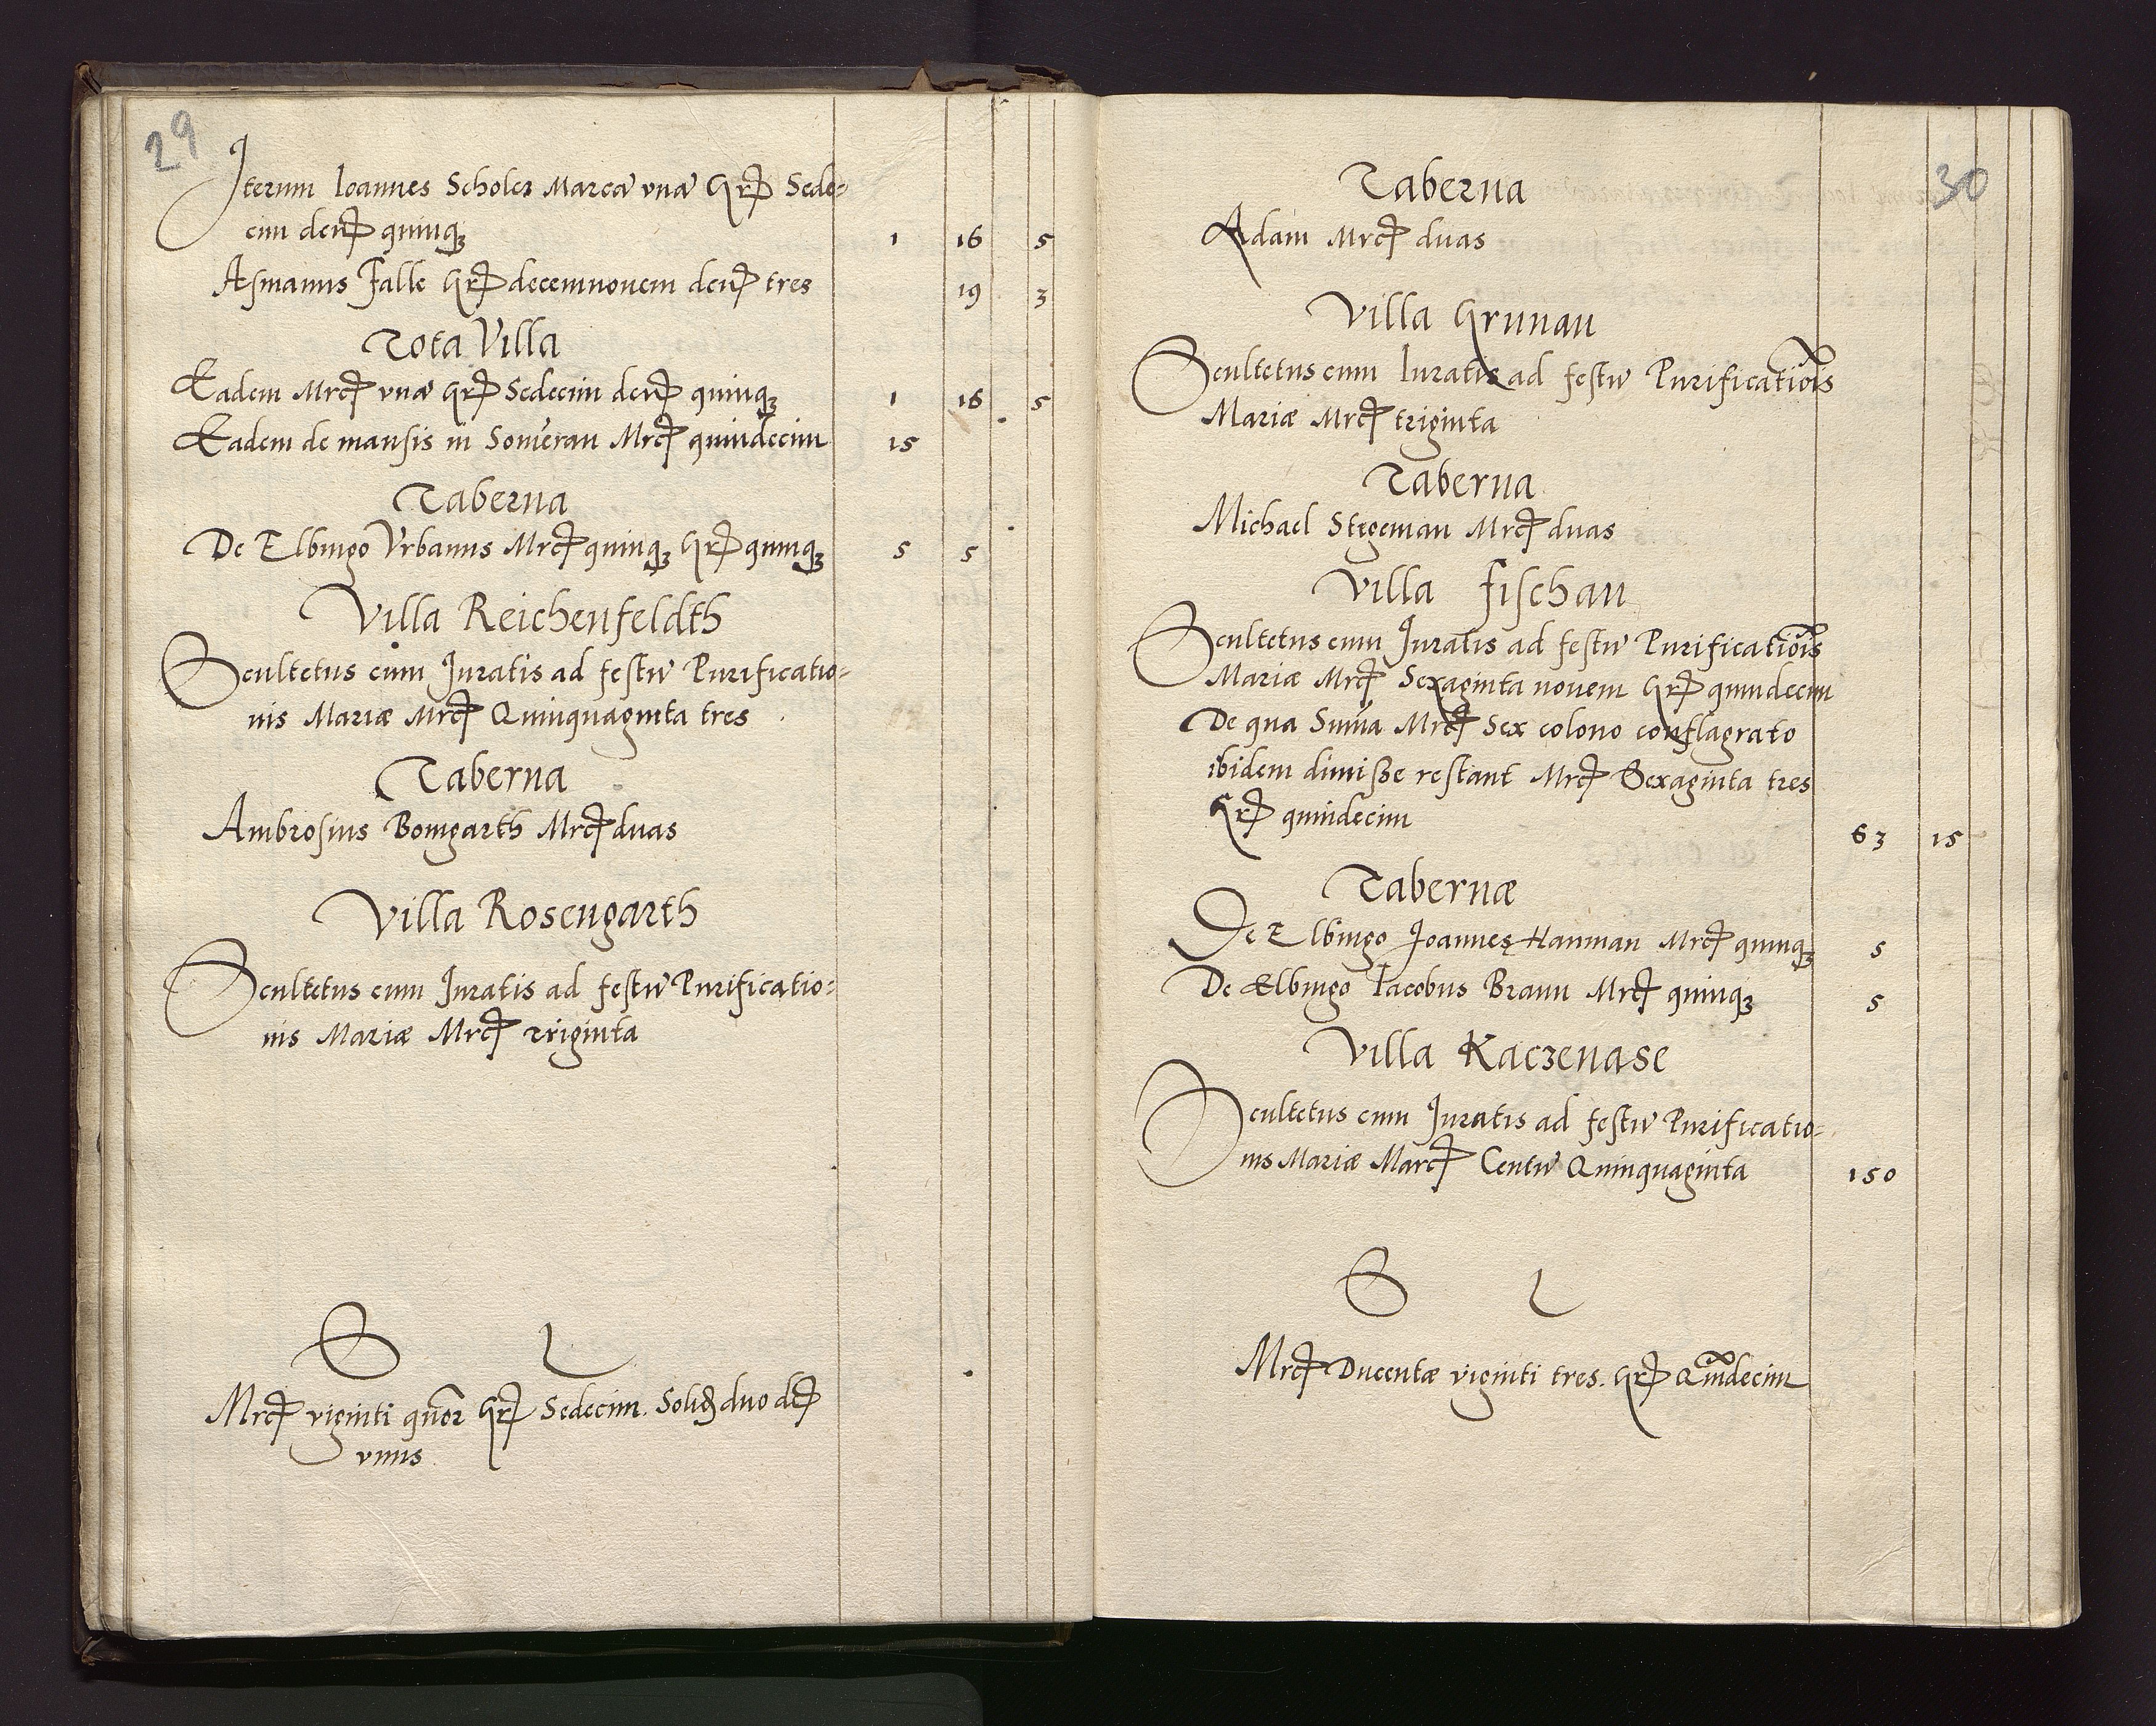 29
Iterum Ioannes Scholcz Marcā vnā Gr Sede=
cim den quinq₃ 1 16 5
Asmanus Falle Gr decemnouem den tres 19 3
Tota Villa
Eadem Mrc vnā Gr Sedecim den quinq₃ 1 16 5
Eadem de mansis in Som̄erau Mrc quindecim 15
Taberna
De Elbingo Vrbanus Mrc quinq₃ Gr quinq₃ 5 5
Villa Reichenfeldth
Scultetus cum Iuratis ad festū Purificatio=
nis Mariæ Mrc Quinquaginta tres
Taberna
Ambrosius Bomgarth Mrc duas
Villa Rosengarth
Scultetus cum Iuratis ad festū Purificatio=
nis Mariæ Mrc triginta
S L
Mrc viginti quor Gr Sedecim. Solid duo d
vnus
30
Taberna
Adam Mrc duas
Villa Grunau
Scultetus cum Iuratis ad festū Purificatiois
Mariæ Mrc triginta
Taberna
Michael Stegeman Mrc duas
Villa Fischau
Scultetus cum Iuratis ad festū Purificatiois
Mariæ Mrc Sexaginta nouem Gr quindecim
De qua Sum̄a Mrc Sex colono conflagrato
ibidem dimisse restant Mrc Sexaginta tres
Gr quindecim 63 15
Tabernæ
De Elbingo Joannes Hanman Mrc quinq₃ 5
De Elbingo Iacobus Braun Mrc quinq₃ 5
Villa Kaczenase
Scultetus cum Iuratis ad festū Purificatio=
nis Mariæ Marc Centū Quinquaginta 150
S L
Mrc Ducentæ viginti tres. Gr Quindecim